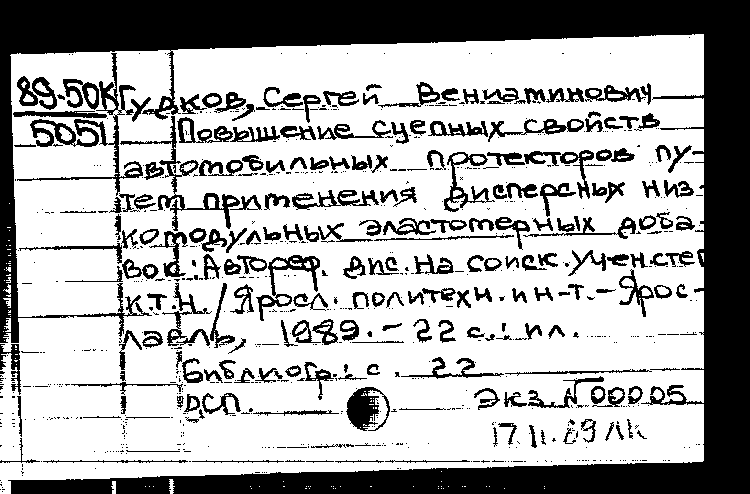 89-50К Гудков, Сергей Вениаминович
5051 Повышение сцепных свойств
автомобильных протекторов пу-
тем применения дисперсных низ-
комодульных эластомерных доба-
вок: Автореф. дис. на соиск. учен. степ
к.т.н. / Яросл. политехн. ин-т. - Ярос-
лавль, 1989. - 22 с.: ил.
Библиогр.: с. 22
ДСП. Экз. № 00005
17.11.89 ЛК